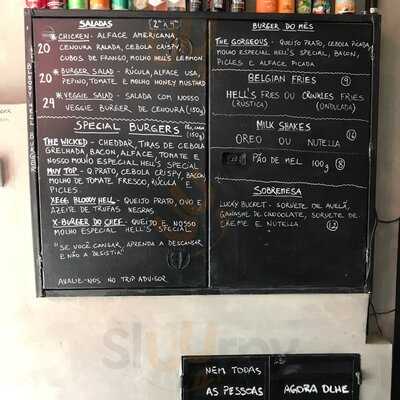 SALADAS (2ª A 4ª)
* CHICKEN - ALFACE AMERICANA,
20 CENOURA RALADA, CEBOLA CRISPY,
CUBOS DE FRANGO, MOLHO HELL'S LEMON
20 * BURGER SALAD - RÚCULA, ALFACE USA,
PEPINO, TOMATE E MOLHO HONEY MUSTARD
24 * VEGGIE SALAD - SALADA COM NOSSO
VEGGIE BURGER DE CENOURA (150g)
SPECIAL BURGERS (150g)
THE WICKED - CHEDDAR, TIRAS DE CEBOLA
GRELHADA, BACON, ALFACE, TOMATE E
NOSSO MOLHO ESPECIAL HELL'S SPECIAL
MUY TOP - Q. PRATO, CEBOLA CRISPY, BACON,
MOLHO DE TOMATE FRESCO, RÚCULA E
PICLES.
XEGG BLOODY HELL - QUEIJO PRATO, OVO E
AZEITE DE TRUFAS NEGRAS
X-BURGER DO CHEF - QUEIJO E NOSSO
MOLHO ESPECIAL HELL'S SPECIAL
"SE VOCÊ CANSAR, APRENDA A DESCANSAR
E NÃO A DESISTIR"
AVALIE-NOS NO TRIP ADVISOR
BURGER DO MÊS
THE GORGEOUS - QUEIJO PRATO, CEBOLA PICADA,
MOLHO ESPECIAL HELL'S SPECIAL, BACON,
PICLES E ALFACE PICADA
BELGIAN FRIES (9)
HELL'S FRIES OU CRINKLES FRIES
(RÚSTICA) (ONDULADA)
MILK SHAKES
OREO OU NUTELLA (16)
PÃO DE MEL 100g (8)
SOBREMESA
LUCKY BUCKET - SORVETE DE AVELÃ,
GANASHE DE CHOCOLATE, SORVETE DE
CREME E NUTELLA (12)
NEM TODAS
AS PESSOAS
AGORA OLHE